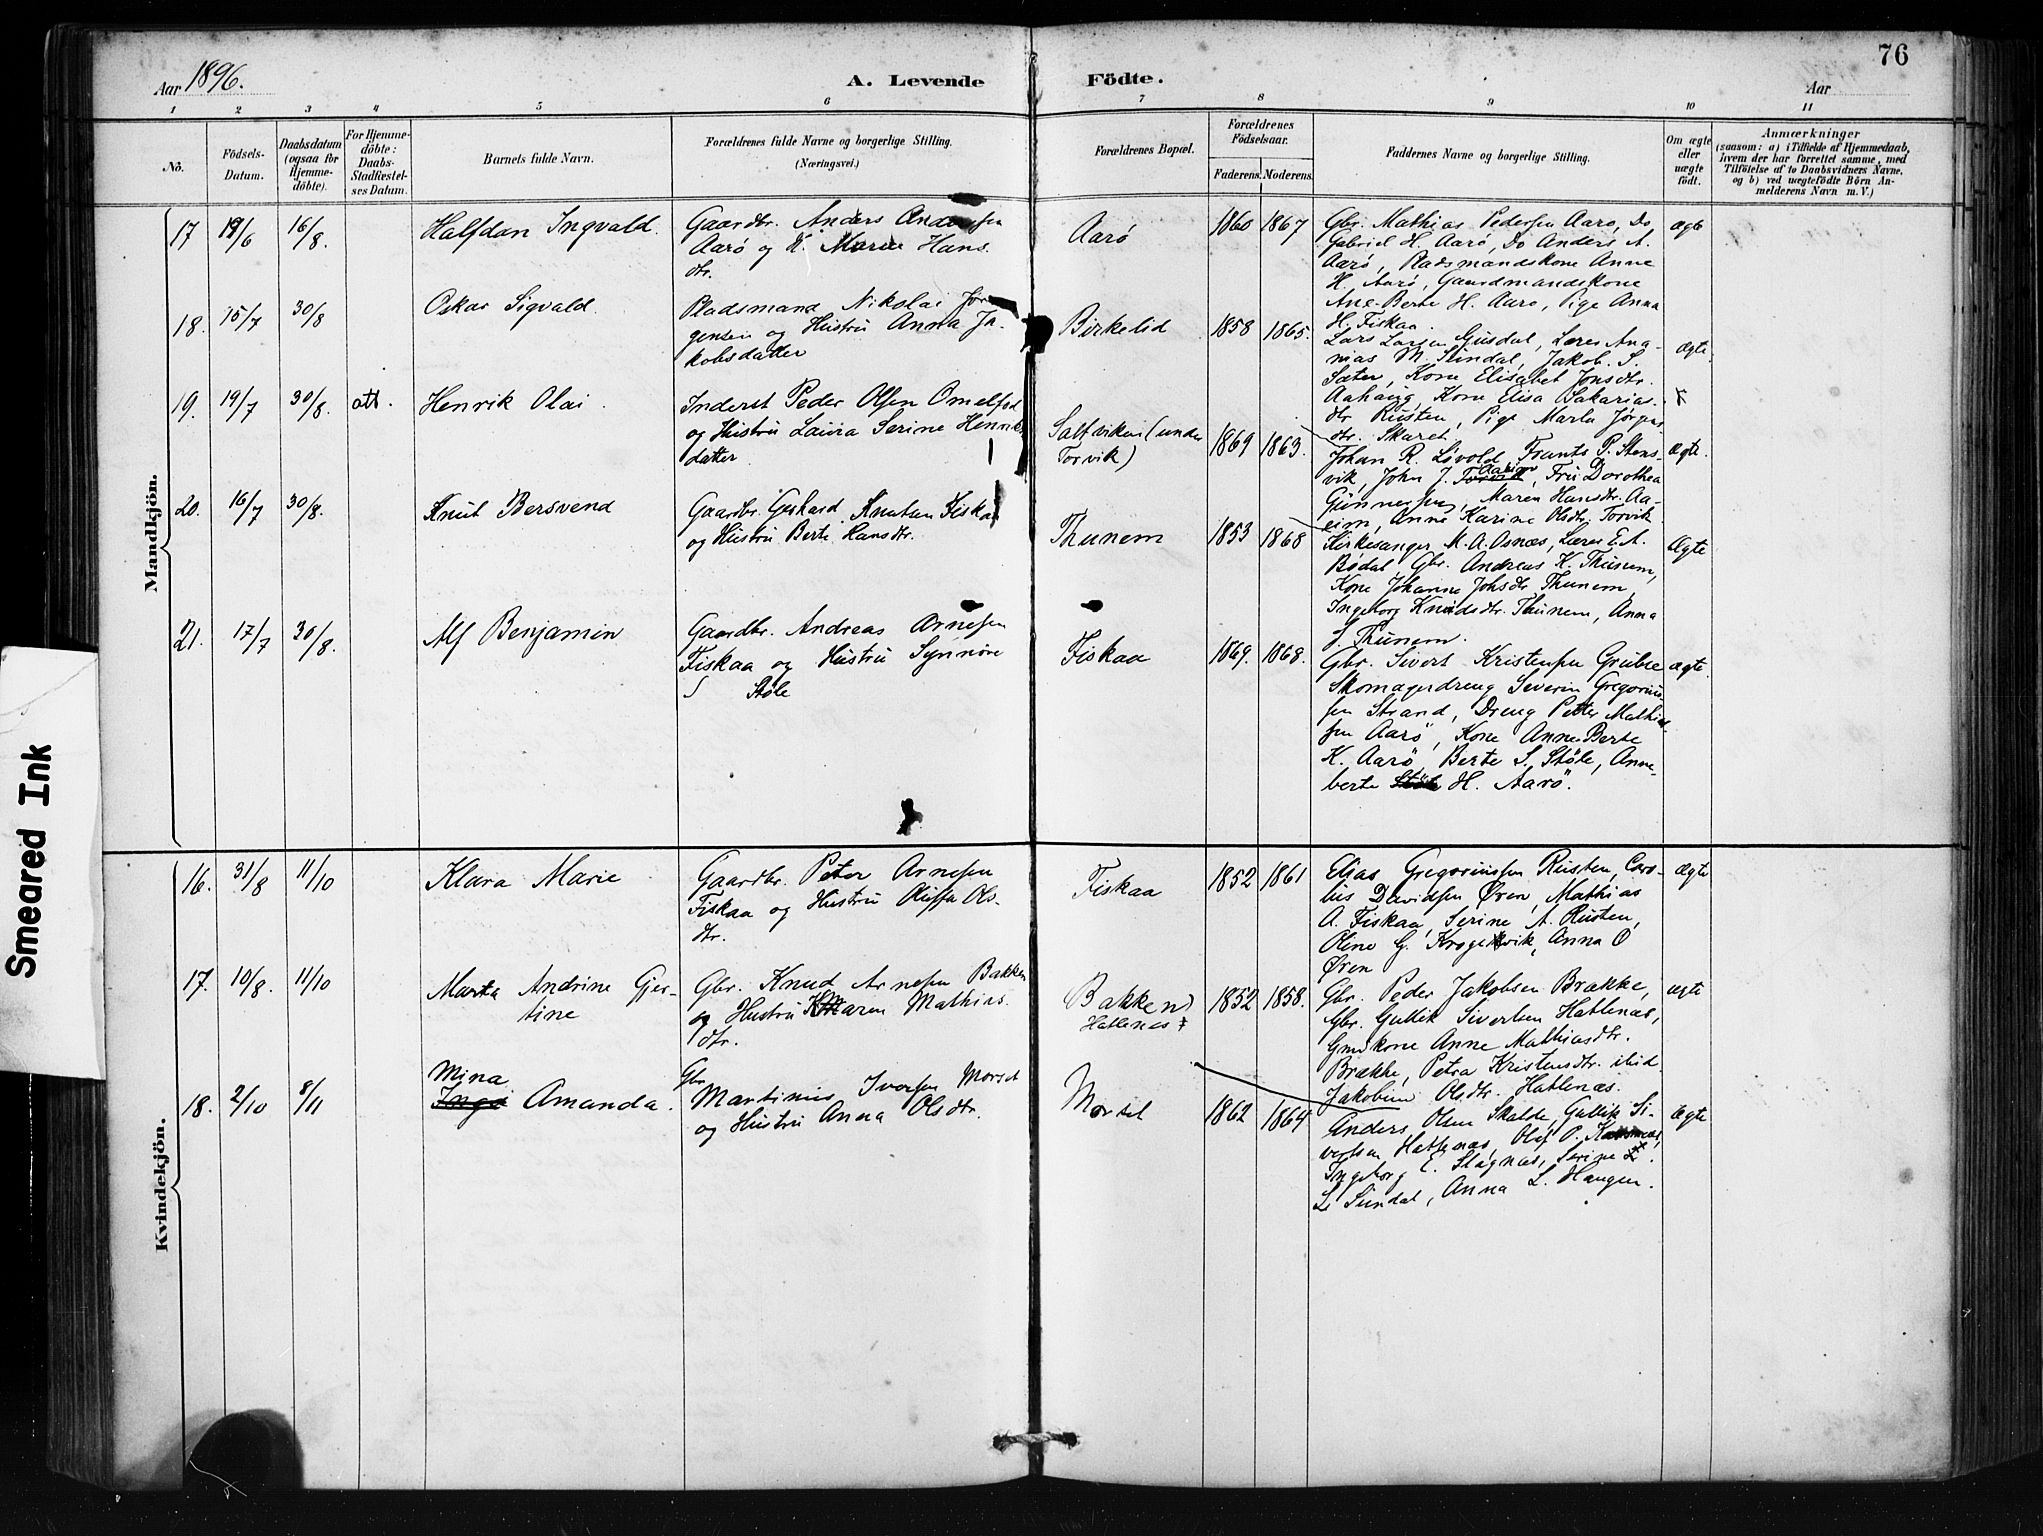 76
Aar 1896.
A. Levende
Födte.
Aar
1 2 3 4 5 6 7 8 9 10 11
No.
Födsels-Datum.
Daabsdatum (ogsaa for Hjemme-döbte).
For Hjemme-döbte: Daabs-Stadfæstel-ses Datum.
Barnets fulde Navn.
Forældrenes fulde Navne og borgerlige Stilling.
(Næringsvei.)
Forældrenes Bopæl.
Forældrenes Födselsaar.
Faderens. Moderens.
Faddernes Navne og borgerlige Stilling.
Om ægte eller uægte födt.
Anmærkninger
(saasom: a) i Tilfælde af Hjemmedaab,
hvem der har forrettet samme, med
Tilföielse af to Daabsvidners Navne,
og b) ved uægtefödte Börn An-
melderens Navn m. V.)
Mandkjön.
17 19/6 16/8. Halfdan Ingvald.
Gaardbr. Anders Andersen
Aarö og H. Maren Hans
dtr.
Aarö 1860 1867
Gbr. Mathias Pedersen Aarö, Do
Gabriel H. Aarö, Do Anders A.
Aarö, Pladsmandskone Anne
H. Aarö, Gaardmandskone
Ane-Berte H. Aarö, Pige Anna
H. Fiskaa.
ægte
18. 15/7 30/8 Oskar Sigvald.
Pladsmand Nikolai Jør
gensen og Hustru Anna Ja-
kobsdatter
Birkelid 1858 1865.
Lars Larsen Gusdal, Lærer Ana-
nias M. Sundal, Jakob S.
Sæter, Kone Elisabet Jonsdtr.
Aahaug, Kone Elisa Sakarias-
dtr Rusten, Pige Marta Jørgens
dtr. Skaret
Ægte.
19. 19/7 30/8. att. Henrik Olai.
Inderst Peder Olsen Omelfod
og Hustru Laura Serine Henriks
datter
Saltviken (under
Torvik) 1869 1863.
Johan R. Løvold, Frants P. Stens-
vik, John J. Torvik, Frü Dorothea
Gunnersen, Maren Hansdtr. Aa-
eim, Anne Karine Olsdtr. Torvik
Ægte.
20. 16/7 30/8. Knut Bersvend
Gaardbr. Gerhard Knutsen Fiskaa
og Hustru Berte Hansdtr.
Thunem 1853 1868
Kirkesanger M. A. Osnæs, Lærer E. A.
Bødal Gbr. Andreas K. Thunem,
Kone Johanne Johsdtr Thunem,
Ingeborg Knudsdtr. Thunem, Anna
J. Thunem.
Ægte
21. 17/7 30/8. Alf Benjamin
Gaardbr. Andreas Arnesen
Fiskaa og Hustru Synnøve
S Støle
Fiskaa 1869. 1868.
Gbr. Sivert Kristensen Grubse
Skomagerdreng Severin Gregorius
sen Strand, Dreng Petter Mathias-
sen Aarö, Kone Anne Berte
K. Aarö, Berte S. Støle, Anne-
berte Støle H. Aarö.
ægte.
Kvindekjön.
16. 31/8 11/10 Klara Marie
Gaardbr. Peter Arnesen
Fiskaa og Hustru Oluffa Ols-
dtr.
Fiskaa 1852 1861
Elias Gregoriussen Rusten, Caro-
lus Davidsen Øren, Mathias
A. Fiskaa, Serine A. Rusten,
Oline G. Krogevik, Anna O
Øren
ægte
17. 10/8. 11/10 Marta Andrine Gjer-
tine
Gbr. Knud Arnesen Bakken
og Hustru Maren Mathias
dtr.
Bakken
Hatlenæs 1852 1858.
Gbr. Peder Jakobsen Brække,
Gbr. Gullik Sivertsen Hatlenæs,
Gmdkone Anne Mathiasdtr.
Brække, Petra Kristensdtr. ibid
Jakobine Olsdtr. Hatlenæs.
ægte
18. 2/10 8/11 Mina
Inga Amanda.
Gbr
Martinus Iversen Morset
og Hustru Anna Olsdtr.
Morset 1862 1864
Anders Olsen Skalde, Gullik Si-
vertsen Hatlenæs, Olof O.
Ingeborg E. Slagnæs, Serine
L. Sundal, Anna L. Haugen.
Ægte
Smeared Ink